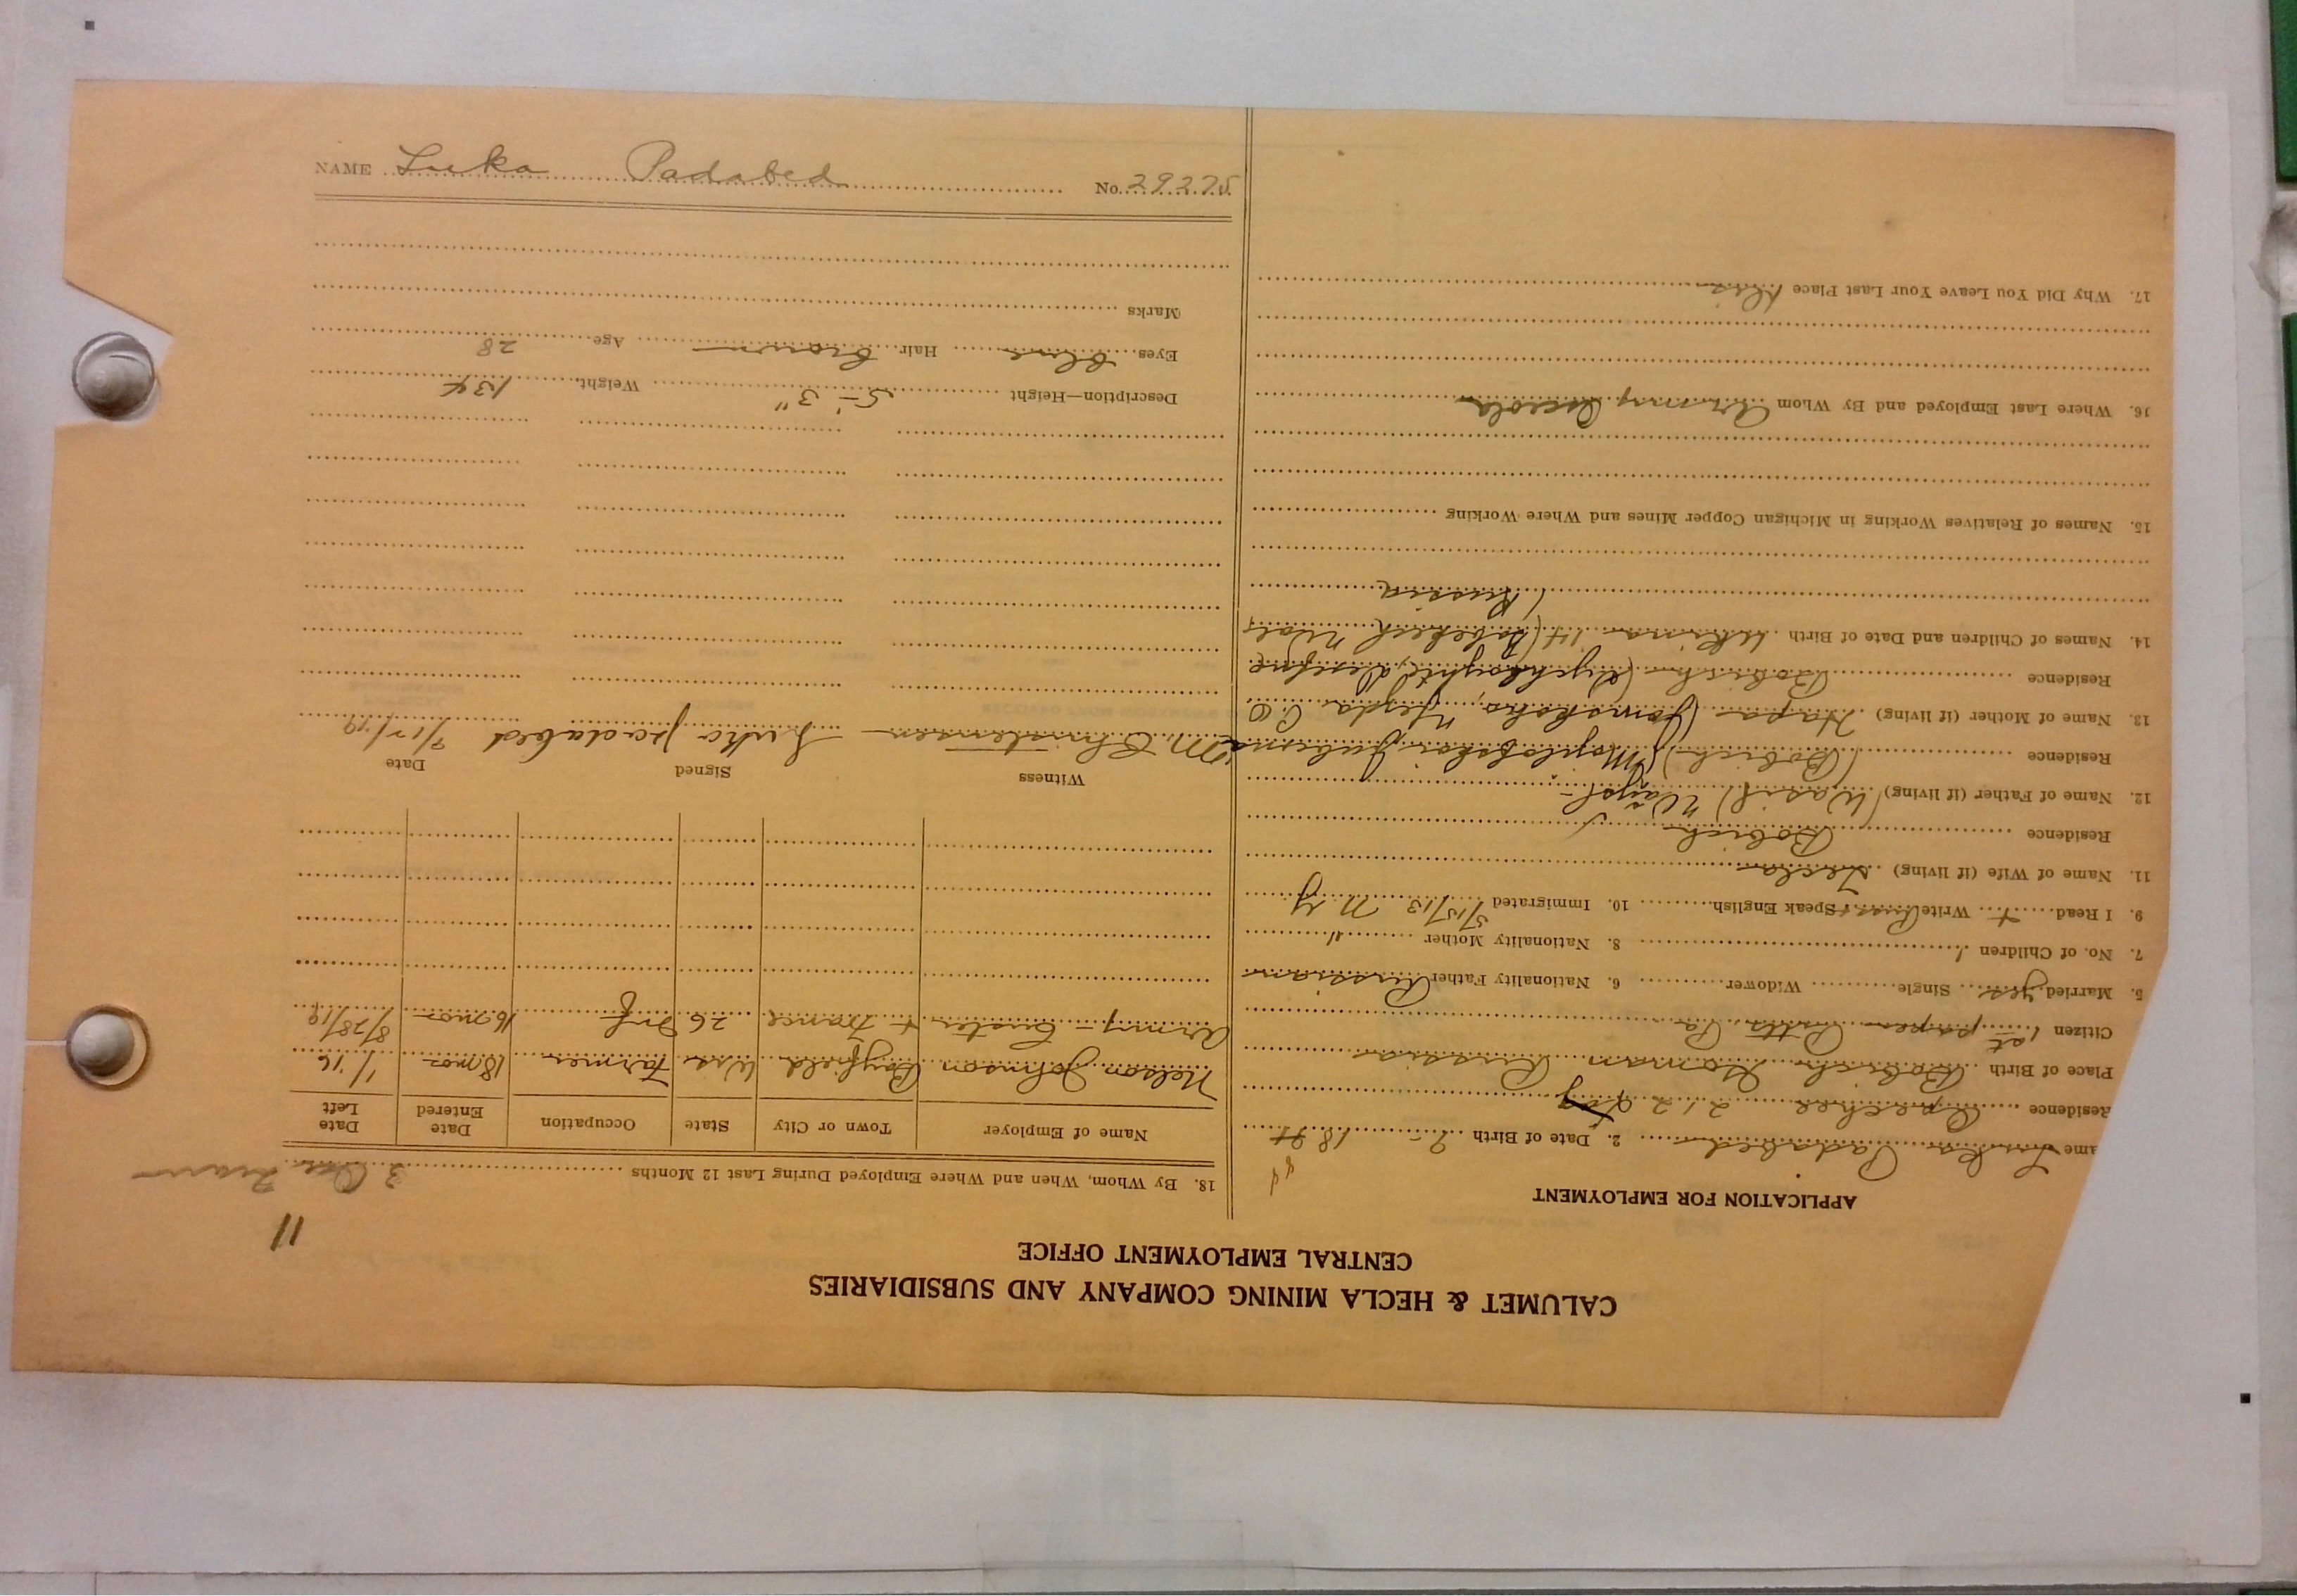 CALUMET & HECLA MINING COMPANY AND SUBSIDIARIES
CENTRAL EMPLOYMENT OFFICE
11
APPLICATION FOR EMPLOYMENT
ame Luka Padabed 2. Date of Birth 18
Residence 212
Place of Birth Bobich Russia
Citizen 1st paper Pitts Pa
5. Married yes Single Widower 6. Nationality Father Russian
7. No. of Children 1 8. Nationality Mother "
9. I Read + Write Speak English 10. Immigrated 5/15/13 N. Y
11. Name of Wife (if living) Tecla
Residence Bobich
12. Name of Father (if living) (Wasil)
Residence (Bobich)
13. Name of Mother (if living)
Residence Bobich
14. Names of Children and Date of Birth
(Russia
15. Names of Relatives Working in Michigan Copper Mines and Where Working
16. Where Last Employed and By Whom Army Osceola
17. Why Did You Leave Your Last Place
18. By Whom, When and Where Employed During Last 12 Months 3
Name of Employer Town or City State Occupation Date Entered Date Left
Nelson Johnson Bayfield Wis Farmer 18 mos 1/16
Army - Custer + France 26 Inf 16 mos 8/28/19
Witness Signed Date
M Christensen Luka padabed 9/17/19
Description—Height 5'- 3" Weight 134
Eyes blue Hair brown Age 28
Marks
NAME Luka Padabed No. 29275